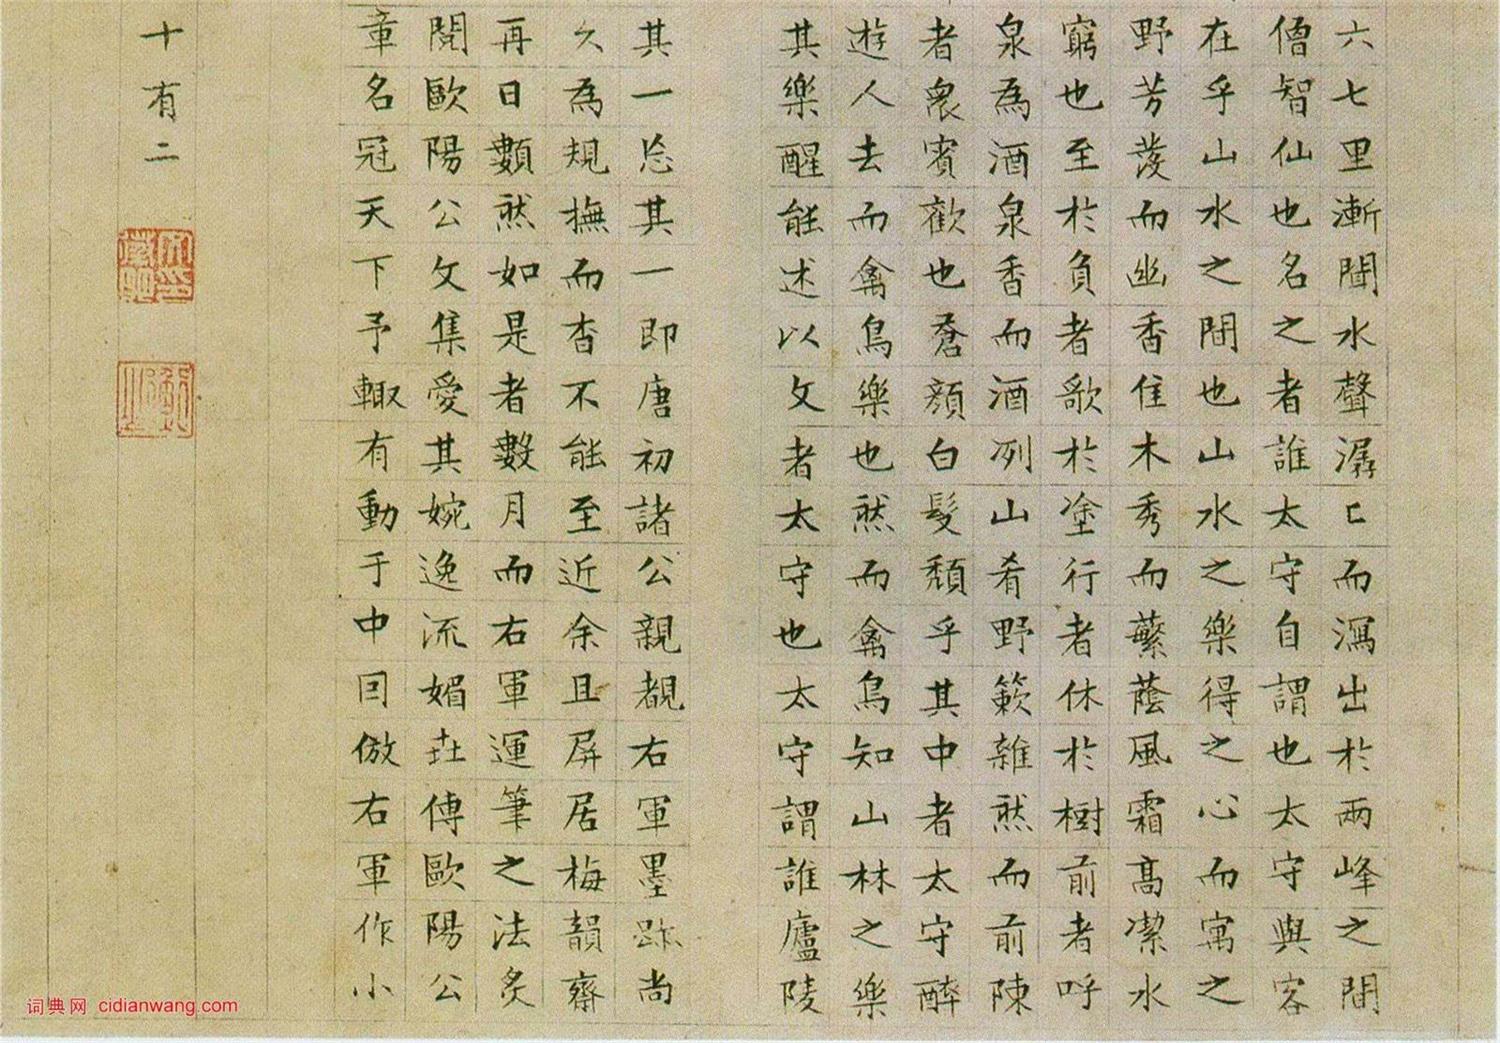 六七里漸聞水聲潺〻而瀉出於兩峰之間
僧智仙也名之者誰太守自謂也太守與客
在乎山水之間也山水之樂得之心而寓之
野芳發而幽香佳木秀而蘩蔭風霜高潔水
窮也至於負者歌於塗行者休於樹前者呼
泉為酒泉香而酒冽山肴野簌雜然而前陳
者眾賓歡也蒼顏白髮頹乎其中者太守醉
遊人去而禽鳥樂也然而禽鳥知山林之樂
其樂醒能述以文者太守也太守謂誰廬陵
其一其一即唐初諸公親覩右軍墨跡尚
久為規撫而杳不能至近余且屏居梅韻齋
再日數然如是者數月而右軍運筆之法
閱歐陽公文集愛其婉逸流媚世傳歐陽公
章名冠天下予輙有動于中因倣右軍作小
十有二
词典网 cidianwang.com